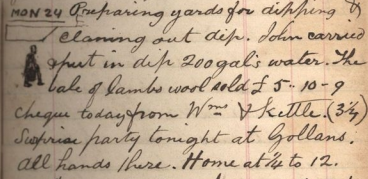 MON 24 Preparing yards for dipping &
claning out dip. John carried
& put in dip 200 gal's water. The
sale of lambs wool sold £5-10-9
cheque today from Wms & Kettle. (3½)
Surprise party tonight at Gollans.
All hands there. Home at ¼ to 12.